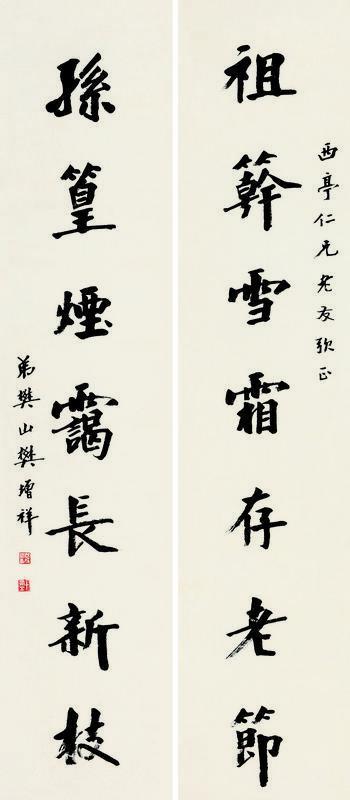 西亭仁兄老友正
祖簳雪霜存老節
孫篁煙靄長新枝
弟樊山樊增祥